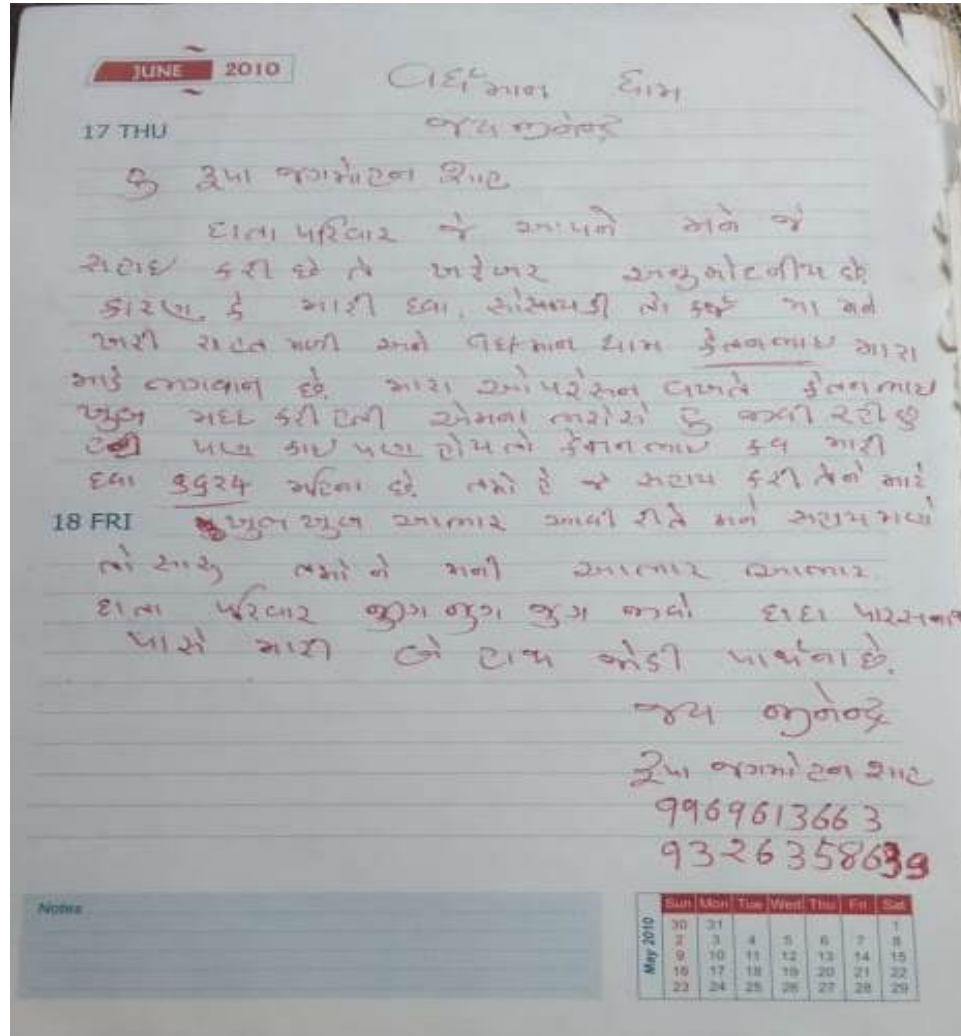 JUNE 2010
વર્ધમાન ધામ
17 THU
જય જીનેન્દ્ર
હુ રૂપા જગમોહન શાહ
દાતા પરિવાર જે આપને મને જે
સહાઇ કરી છે તે ખરેખર અનુમોદનીય છે
કારણ કે મારી દવા, તો મા મને
ખરી રાહત મળી અને વર્ધમાન ધામ કેતનભાઇ મારા
માટે ભગવાન છે. મારા ઓપરેસન વખતે કેતનભાઇ
ખુબ મદદ કરી હતી એમના ભરોસે હુ જીવી રહી છુ
પણ કાઇ પણ હોય તો કેતનભાઇ મારી
દવા મહિના છે જે સહાય કરી તેને માટે
18 FRI
ખુબ ખુબ આભાર આવી રીતે મને સહાય મળે
તો સારૂ તમો ને મની આભાર આભાર
દાતા પરિવાર જુગ જુગ જુગ જીવો દાદા પારસનાથ
પાસે મારી બે હાથ જોડી પાર્થના છે.
જય જીનેન્દ્ર
રૂપા જગમોહન શાહ
9969613663
93263586
Notes
May 2010
Sun Mon Tue Wed Thu Fri Sat
30 31 1
2 3 4 5 6 7 8
9 10 11 12 13 14 15
16 17 18 19 20 21 22
23 24 25 26 27 28 29